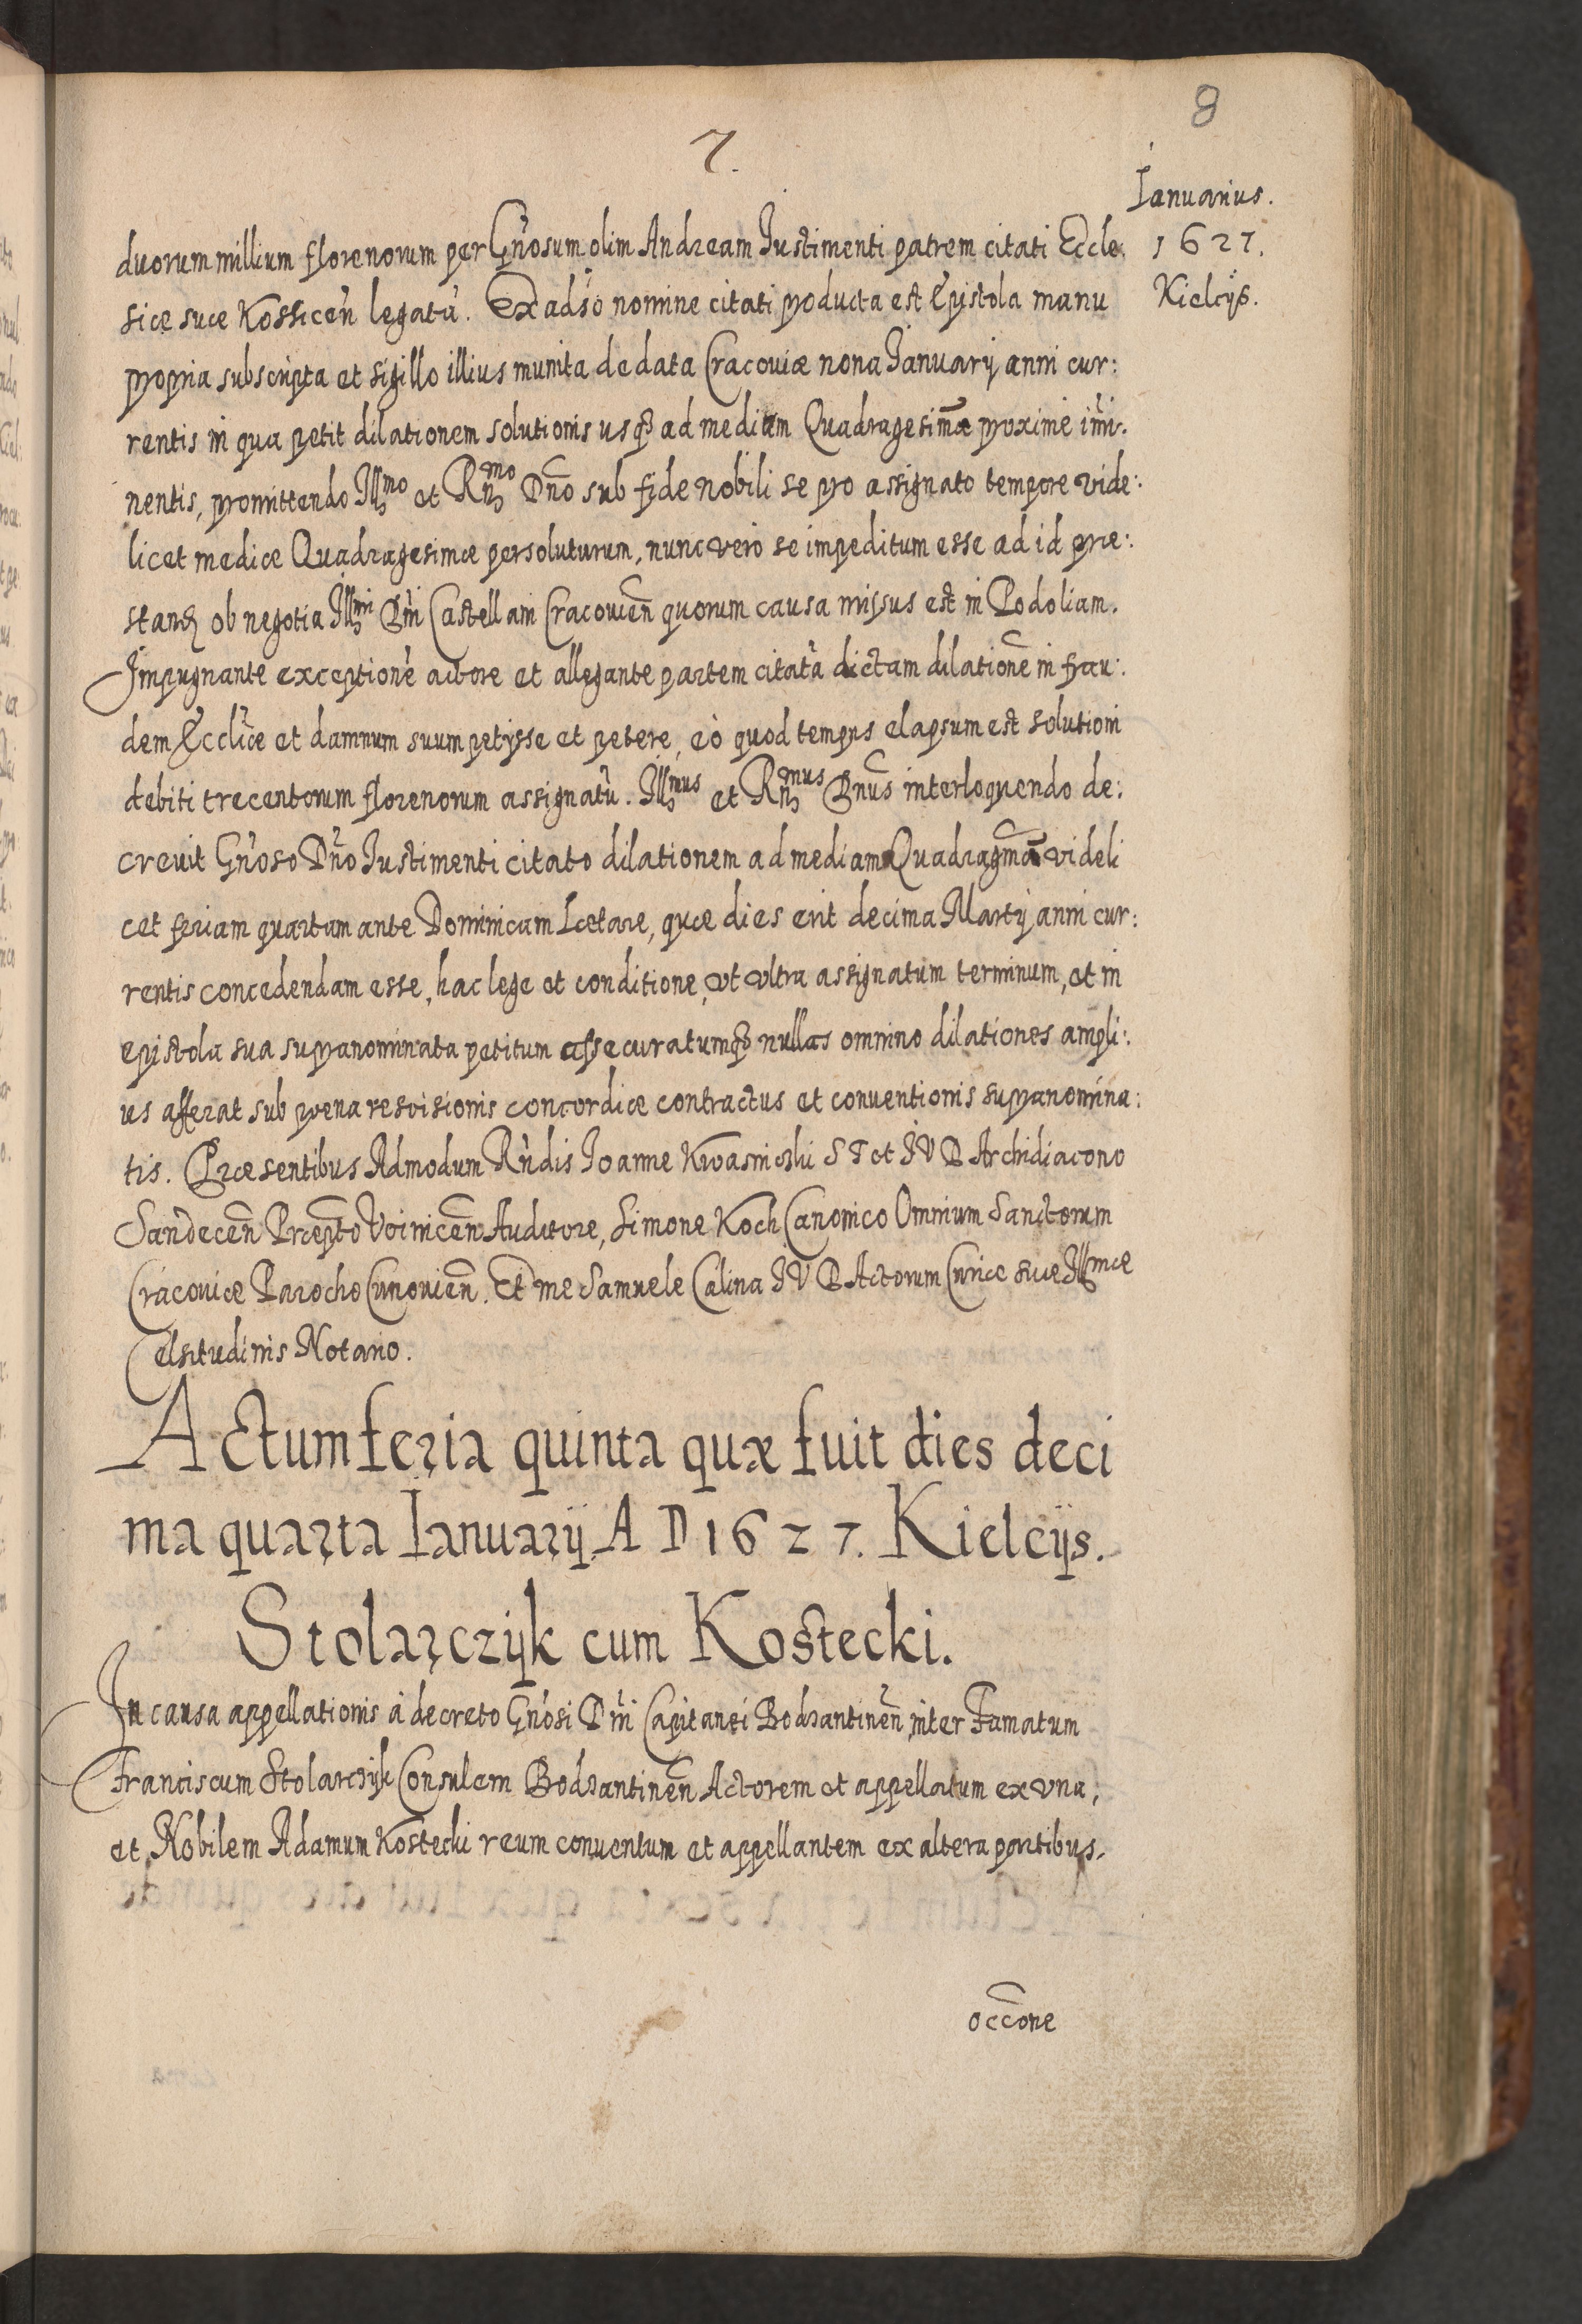 8
7.
Ianuarius.
1627.
Kielcijs.
duorum millium florenorum per Gn̄osum olim Andream Iustimenti patrem citati Eccle:
siæ suæ Kossicen̄ legatū. Ex adūso nomine citati producta est Epistola manu
propria subscripta et sigillo illius munita de data Cracouiæ nona Ianuarij anni cur:
rentis in qua petit dilationem solutionis usq₃ ad mediam Quadragesimæ proxime im̄i:
nentis, promittendo Illmo et Rn̄mo Dn̄o sub fide nobili se pro assignato tempore vide:
licet mediæ Quadragesimæ persoluturum, nunc vero se impeditum esse ad id præ:
stand ob negotia Illmi Dn̄i Castellani Cracouien̄ quorum causa missus est in Podoliam.
Impugnante exceptionē actore et allegante partem citatā dictam dilationē in frau:
dem Eccliæ et damnum suum petijsse et petere, eò quod tempus elapsum est solutioni
debiti trecentorum florenorum assignatū. Illmus et Rn̄mus Dn̄us interloquendo de:
creuit Gn̄oso Dn̄o Iustimenti citato dilationem ad mediam Quadragmā videli
cet feriam quartam ante Dominicam Lætare, quæ dies erit decima Martij anni cur:
rentis concedendam esse, hac lege et conditione, vt vltra assignatum terminum, et in
epistola sua supranominata petitum assecuratumq₃ nullas omnino dilationes ampli:
us afferat sub pœna rescisionis concordiæ contractus et conuentionis supranomina:
tis. Præsentibus Admodum Rn̄dis Ioanne Kwasnicski S T et I V D Archidiacono
Sandecen̄ Præpto Voinicen̄ Auditore, Simone Koch Canonico Omnium Sanctorum
Cracouiæ Parocho Cunouien̄. Et me Samuele Calina I V D Actorum Curiæ suæ Illmæ
Celsitudinis Notario.
Actum feria quinta quæ fuit dies deci
ma quarta Ianuarij A D 1627. Kielcijs.
Stolarczyk cum Kostecki.
In causa appellationis à decreto Gn̄osi Dn̄i Capitanei Bodzantinen̄ inter Famatum
Franciscum Stolarczyk Consulem Bodzantinen̄ Actorem et appellatum ex vna,
et Nobilem Adamum Kostecki reum conuentum et appellantem ex altera partibus.
occōne